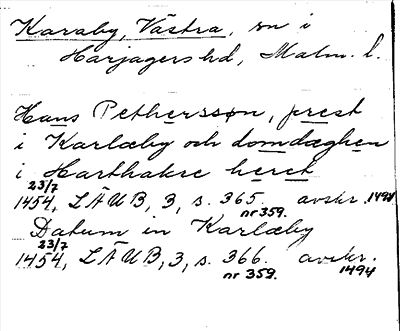 Karaby, Västra, sn i
Harjagers hd, Malm. l.
Hans Petherssøn, prest
i Karlæby och domdæghen
i Harthakre heret
23/7
1454, LÄUB, 3, s. 365. avskr. 1494
nr 359.
Datum in Karlæby
23/7
1454, LÄUB, 3, s. 366. avskr.
nr 359. 1494